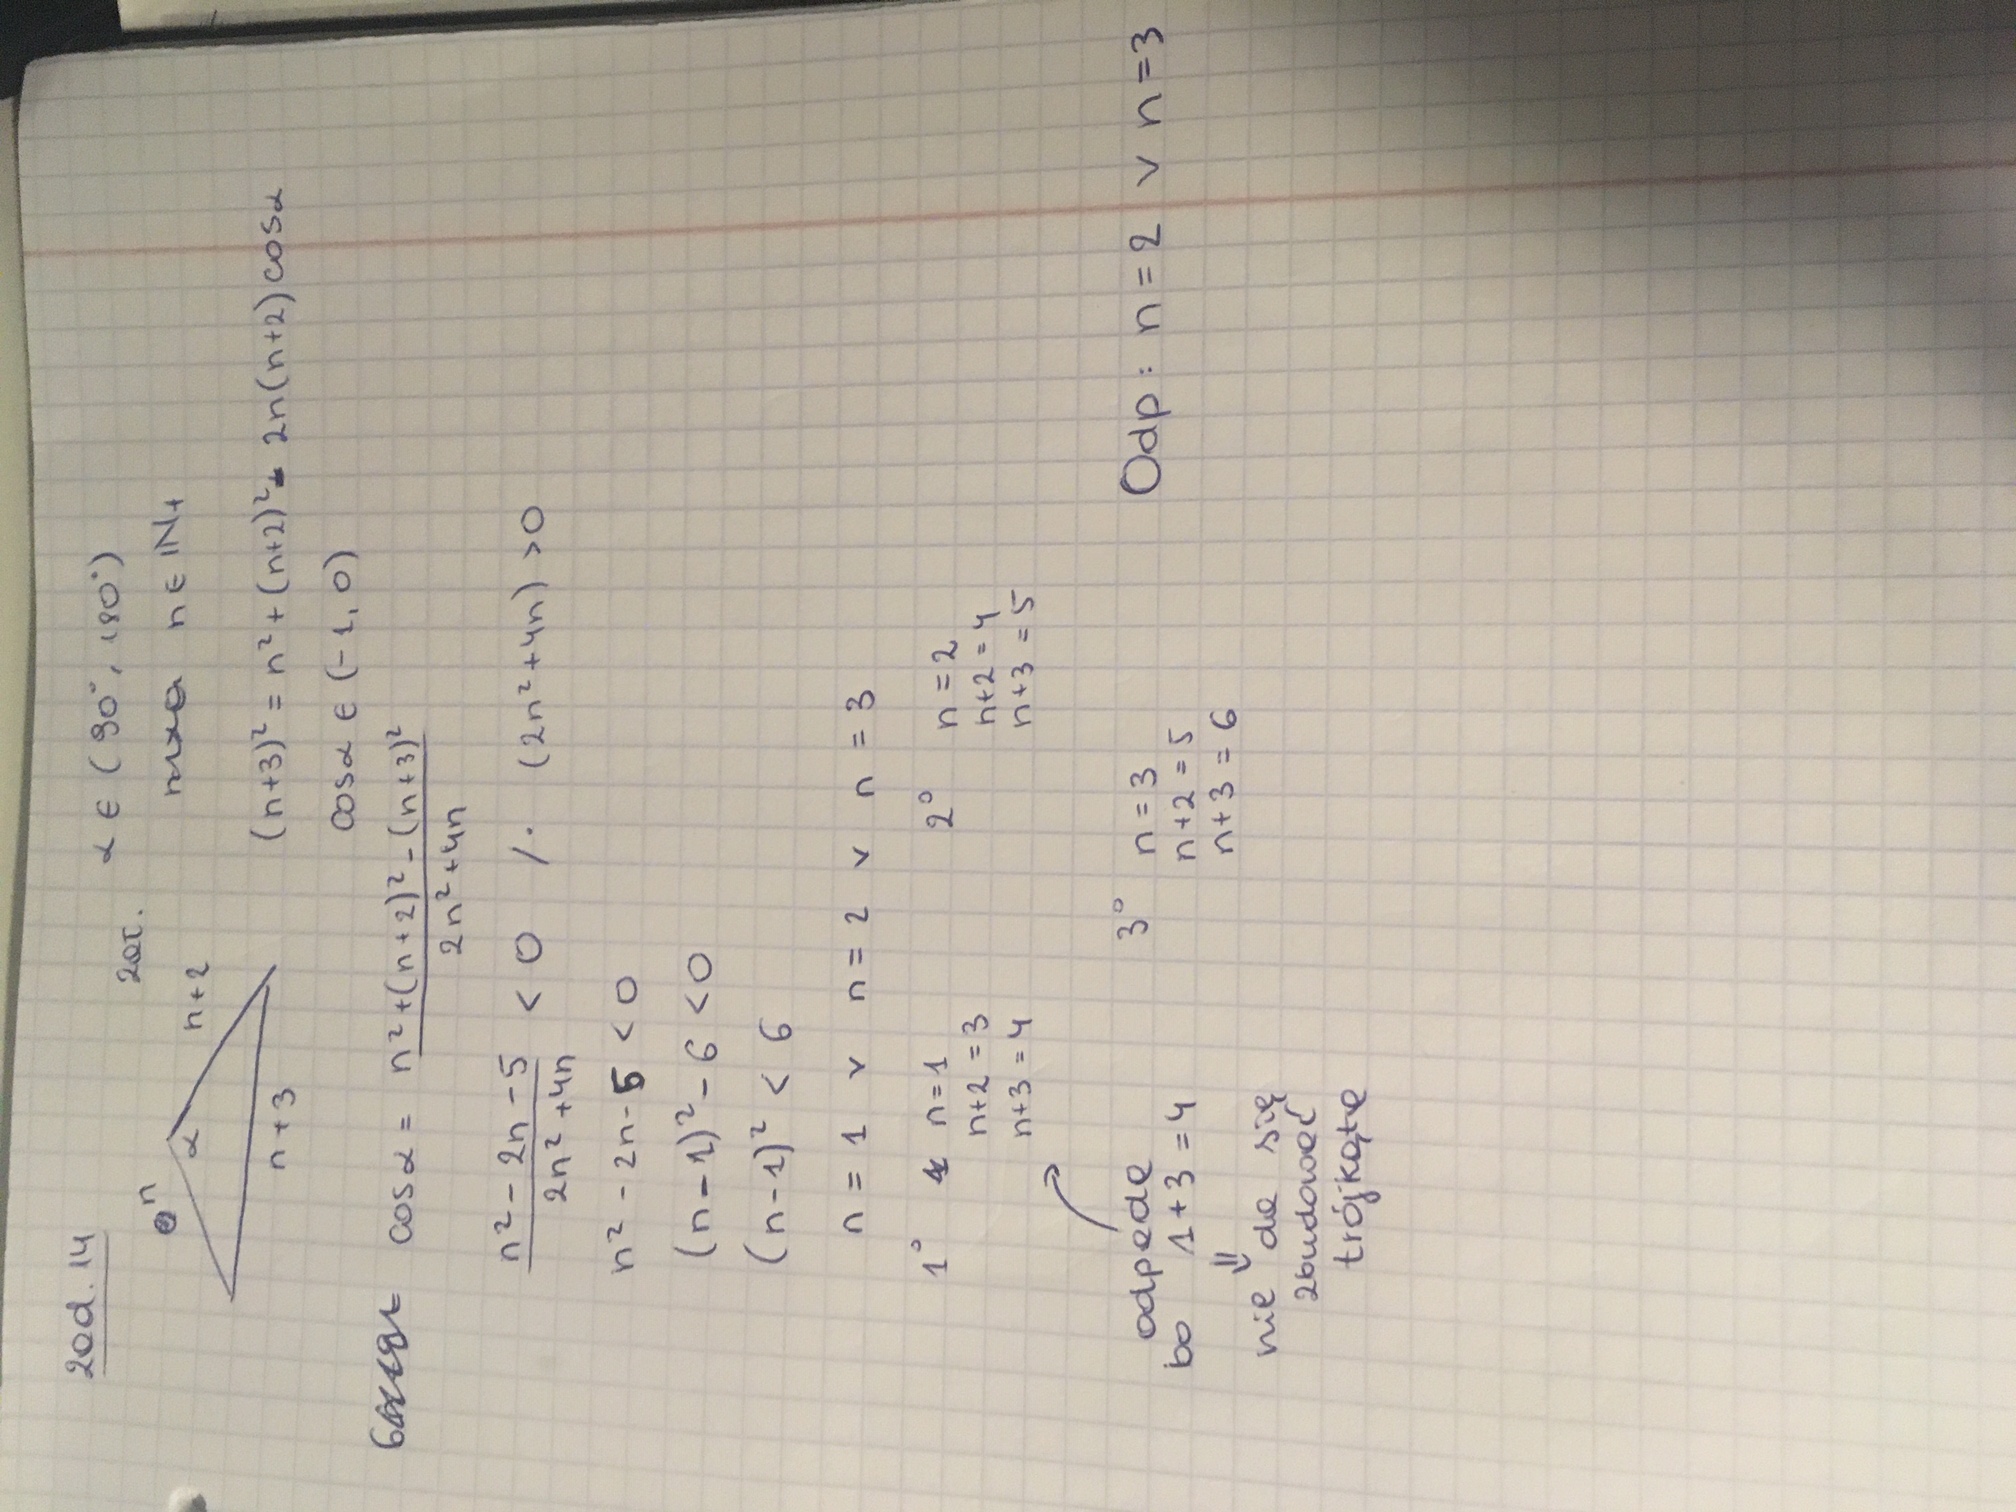 zad. 14
n
n+2
α
n+3
zał. α ∈ (90°, 180°)
n ∈ ℕ₊
(n+3)² = n² + (n+2)² - 2n(n+2)cosα
cosα ∈ (-1, 0)
cosα = \frac{n²+(n+2)²-(n+3)²}{2n²+4n}
\frac{n²-2n-5}{2n²+4n} < 0 /· (2n²+4n) >0
n² - 2n - 5 < 0
(n-1)² - 6 < 0
(n-1)² < 6
n = 1 ∨ n = 2 ∨ n = 3
1° n=1
n+2=3
n+3=4
2° n=2
n+2=4
n+3=5
odpada
bo 1+3=4
⇓
nie da się
zbudować
trójkąta
3° n=3
n+2=5
n+3=6
Odp: n=2 ∨ n=3